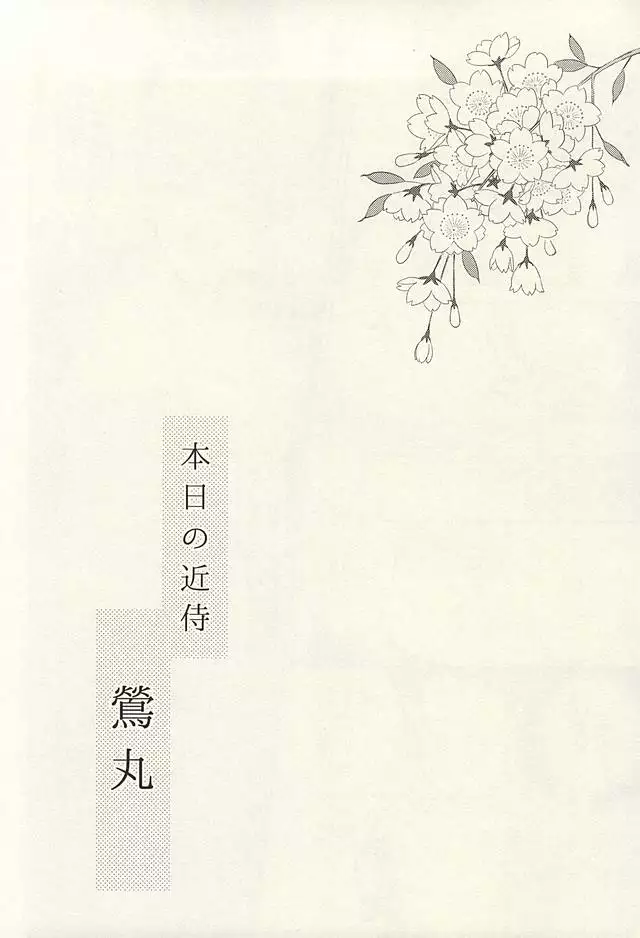 本日の近侍
鶯丸